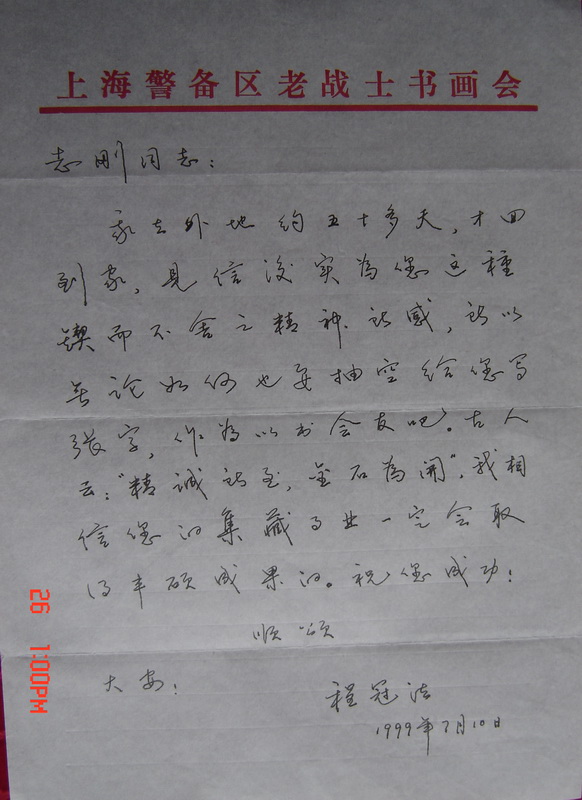 上海警备区老战士书画会
志刚同志：
我去外地约五十多天，才回
到家，见信后实為您这種
锲而不舍之精神所感，所以
无论如何也要抽空给您写
张字，作為以书会友吧。古人
云："精诚所至，金石為開"，我相
信您的集藏事业一定会取
得丰硕成果的。祝您成功！
顺颂
大安！
程冠法
1999年7月10日
26 1:00PM